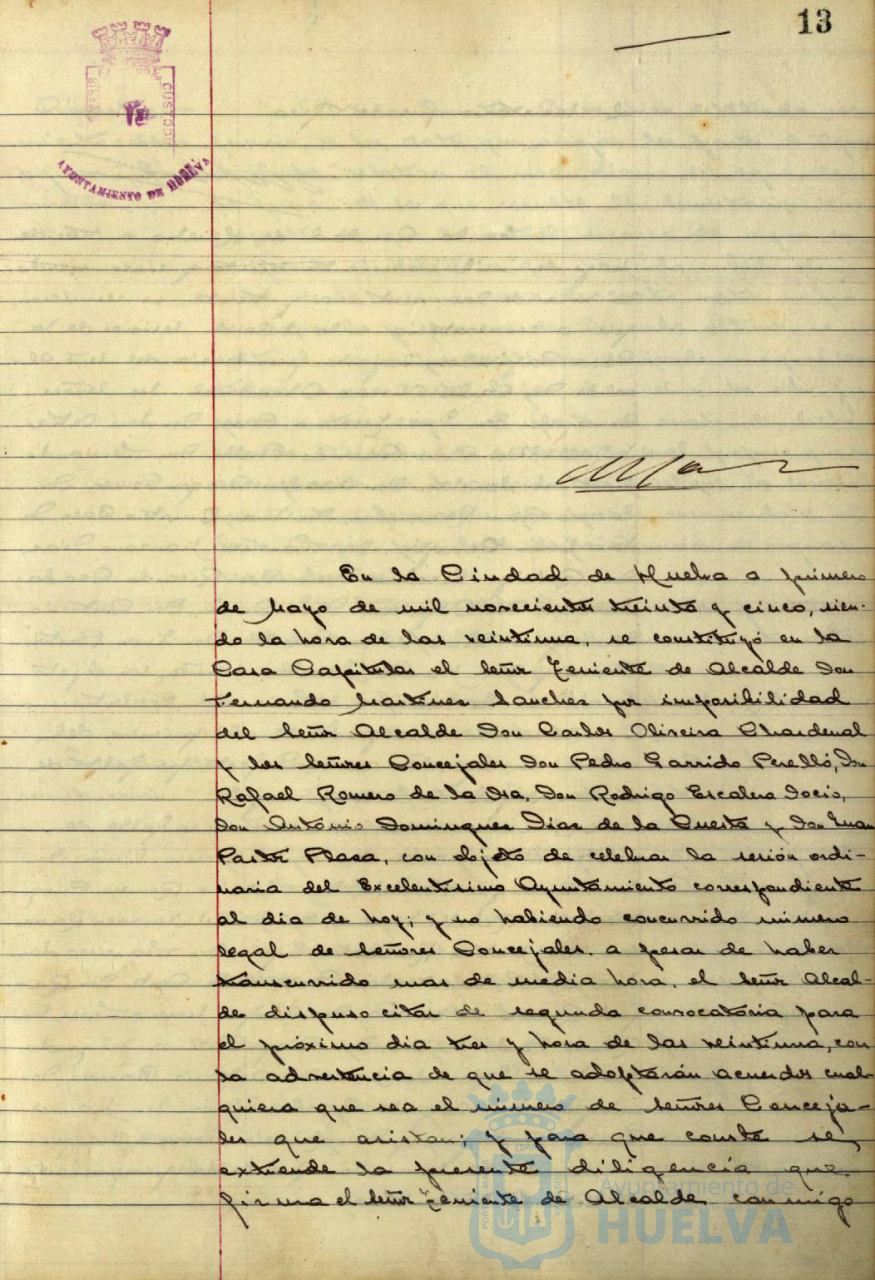 13
AYUNTAMIENTO DE HUELVA
En la Ciudad de Huelva a primero
de Mayo de mil novecientos treinta y cinco, sien-
do la hora de las veintiuna, se constituyó en la
Casa Capitular el Señor Teniente de Alcalde Don
Fernando Martinez Sanchez por imposibilidad
del Señor Alcalde Don Carlos Oliveira Chardenal
y los Señores Concejales Don Pedro Garrido Perelló, Don
Rafael Romero de la Osa, Don Rodrigo Escalera Socis,
Don António Dominguez Diaz de la Cuesta y Don Juan
Pastor Plaza, con objeto de celebrar la sesión ordi-
naria del Excelentísimo Ayuntamiento correspondiente
al dia de hoy; y no habiendo concurrido número
legal de Señores Concejales, a pesar de haber
transcurrido mas de media hora, el Señor Alcal-
de dispuso citar de segunda convocatoria para
el próximo dia tres y hora de las veintiuna, con
la advertencia de que se adoptarán acuerdos cual-
quiera que sea el número de Señores Conceja-
les que asistan; y para que conste se
extiende la presente diligencia que
firma el Señor Teniente de Alcalde conmigo
Ayuntamiento de
HUELVA